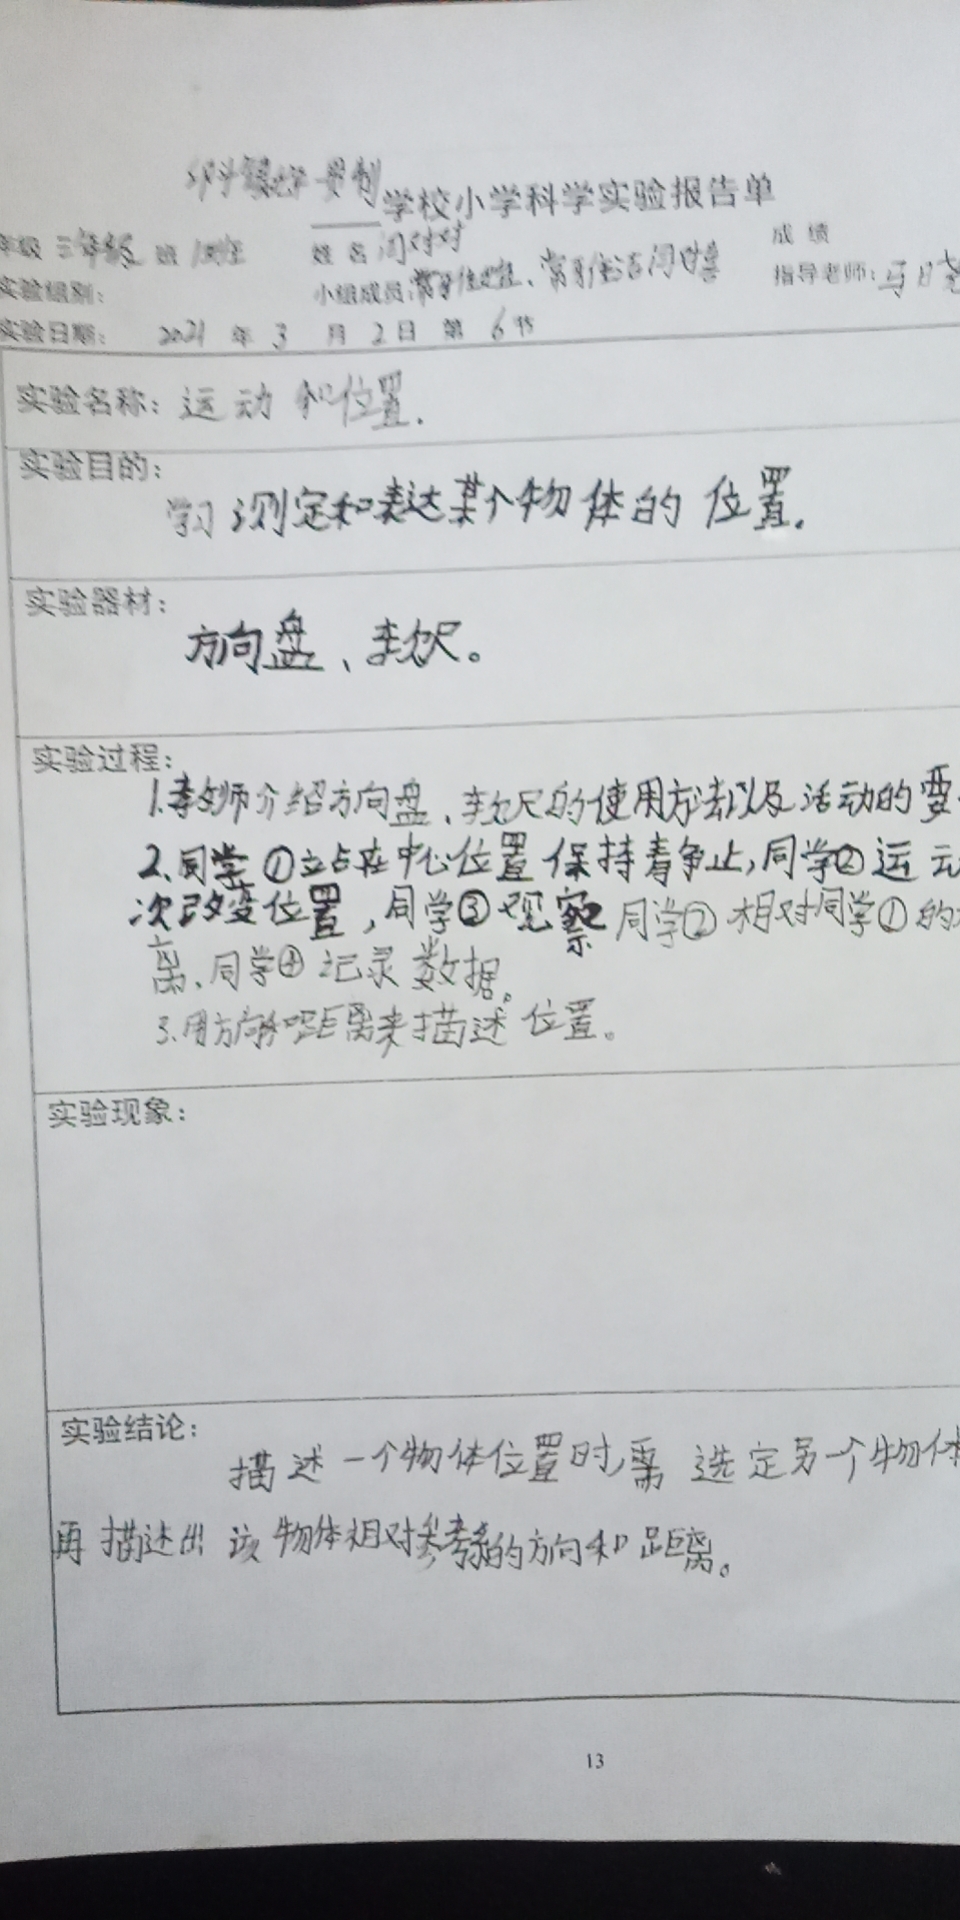 学校小学科学实验报告单
年级 三年级 班 姓名 闫对对 成绩
实验组别: 小组成员: 指导老师:
实验日期: 2021 年 3 月 2 日 第 6 节
实验名称: 运动和位置.
实验目的:
学习测定和表达某个物体的位置.
实验器材:
方向盘、软尺。
实验过程:
1.教师介绍方向盘、软尺的使用方法以及活动的要
2.同学①立占在中心位置保持着争止,同学②运动
次改变位置,同学③观察同学②相对同学①的
离、同学④记录数据。
3.用方向和距离来描述位置。
实验现象:
实验结论:
描述一个物体位置时,需选定另一个物体
再描述出该物体相对参考系的方向和距离。
13